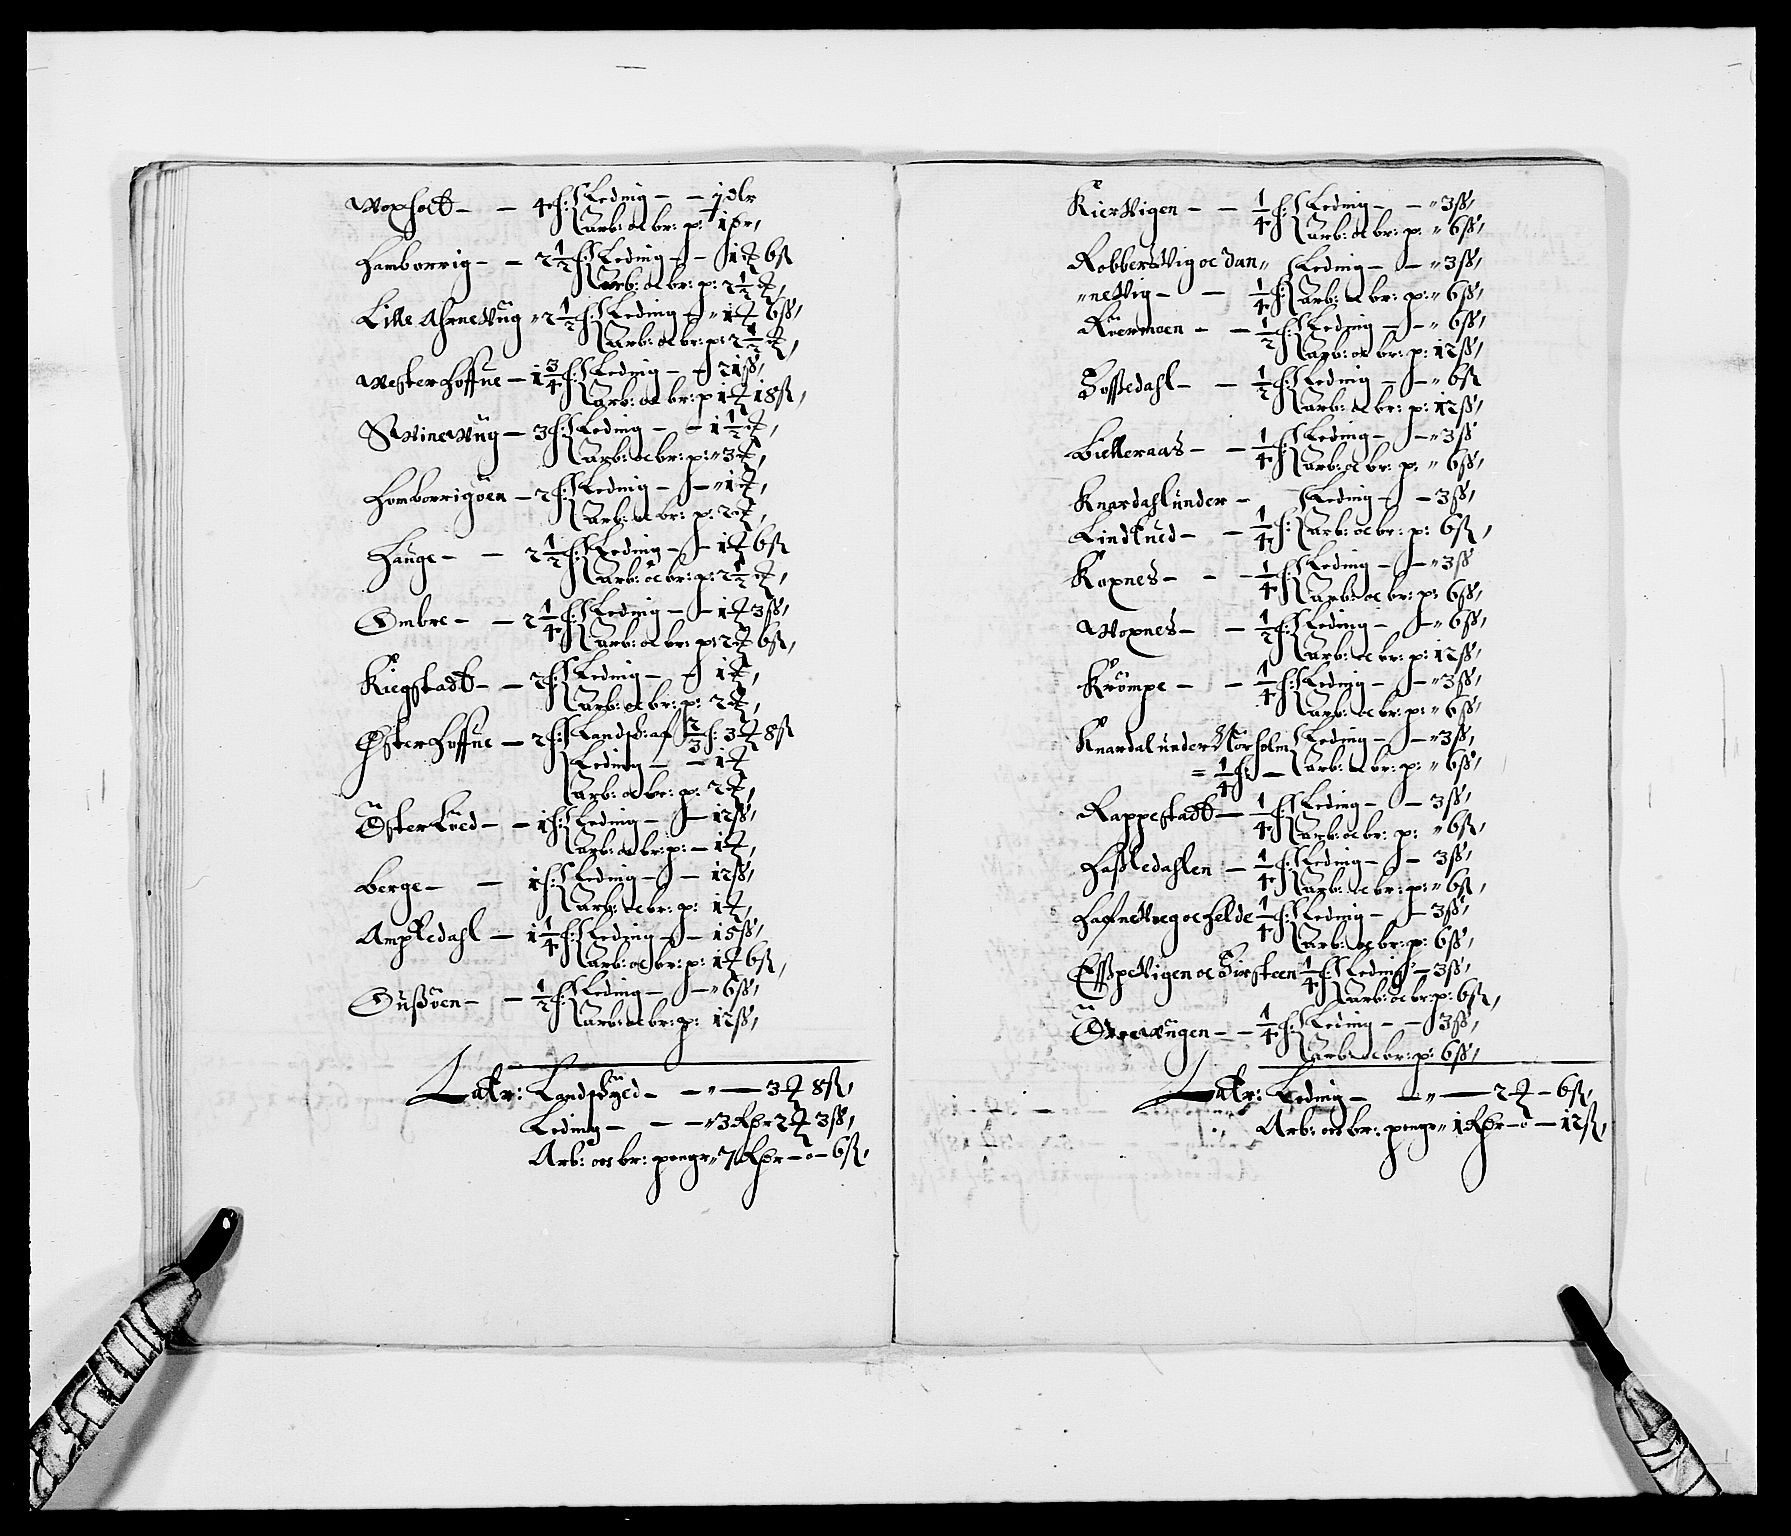 Woxholt — — 4 h: Leding — — 1 dlr
Arb: oc br: p: 1
Hamborrig — — 2 1/2 h: Leding — — 1 ort 6 ß
Arb: oc br: p: 2 1/2 ort,
Lille Ahrnevüg „ 2 1/2 h: Leding — „ 1 ort 6 ß,
Arb: oc br: p: 2 1/2 ort,
Wester Hoffue — 1 3/4 h: Leding — — 21 ß,
Arb: oc br: p 1 ort 18 ß,
Swinewüg — 3 h: Leding — — 1 1/2 ort,
Arb: oc br: p: „ 3 ort,
Homborrigöen — 2 h: Leding — — „ 1 ort,
Arb: oc br: p: 2 ort,
Hauge — — 2 1/2 h: Leding — — 1 ort 6 ß
Arb: oc br: p: 2 1/2 ort,
Ombre — — 2 1/4 h: Leding — — 1 ort 3 ß,
Arb: oc br: p: 2 ort 6 ß,
Kiegstadt — — 2 h: Leding — — 1 ort,
Arb: oc br: p: 2 ort,
Øster Hoffue — 2 h: Landsk: af 2/3 h: 3 ort 8 ß
Leding — — 1 ort
Arb: oc br: p: 2 ort,
Öster Kued — — 1 h: Leding — — 12 ß,
Arb: oc br: p: — 1 ort,
Berge — — 1 h: Leding — — 12 ß,
Arb: oc br: p: 1 ort,
Ampledahl — 1 1/4 h: Leding — — 15 ß,
Arb: oc br: p: 1 ort 6 ß,
Gußöen — — 1/2 h: Leding — — „ 6 ß,
Arb: oc br: p: 12 ß,
Latr: Landskyld — — „ — 3 ort 8 ß,
Leding — — — „ 3 Rdr 2 ort 3 ß,
Arb: oc br: penge „ 7 Rdr — o — 6 ß,
Kierwigen — — 1/4 h: Leding — — „ 3 ß,
Arb: oc br: p: „ 6 ß,
Robberswig oc Dan„ Leding — — „ 3 ß,
„newig — — 1/4 h: Arb: oc br: p: „ 6 ß,
Rüermoen — — 1/2 h: Leding — — „ 6 ß,
Arb: oc br: p: 12 ß,
Foßedahl — — 1/2 h: Leding — — „ 6 ß
Arb: oc br: p: 12 ß,
Bitteraas — — 1/4 h: Leding — — „ 3 ß
Arb: oc br: p: „ 6 ß,
Knardahl under — Leding — — 3 ß,
Lindtued — — 1/4 h: Arb: oc br: p: 6 ß,
Koxnes — — — 1/4 h: Leding — — „ 3 ß
Arb: oc br: p: 6 ß,
Woxnes — — 1/2 h: Leding — — „ 6 ß,
Arb: oc br: p: 12 ß,
Krömpe — — 1/4 h: Leding — — „ 3 ß,
Arb: oc br: p: „ 6 ß,
Knardal under Nörholm Leding — — „ 3 ß,
= 1/4 h: — Arb: oc br: p: „ 6 ß,
Rappestadt — 1/4 h: Leding — — 3 ß,
Arb: oc br: p: „ 6 ß,
Haßledahlen — 1/4 h: Leding — — 3 ß,
Arb: oc br: p: „ 6 ß,
Haffnewieg oc Helde — 1/4 h: Leding — — 3 ß,
Arb: oc br: p: 6 ß,
Eßpewigen oc Firsteen 1/4 h: Leding — 3 ß,
Arb: oc br: p: 6 ß,
Örewügen — — 1/4 h: Leding — — 3 ß,
Arb: oc br: p: 6 ß,
Latr: Leding — — „ — 2 ort — 6 ß,
Arb: oc br: penge „ 1 Rdr — o — 12 ß,